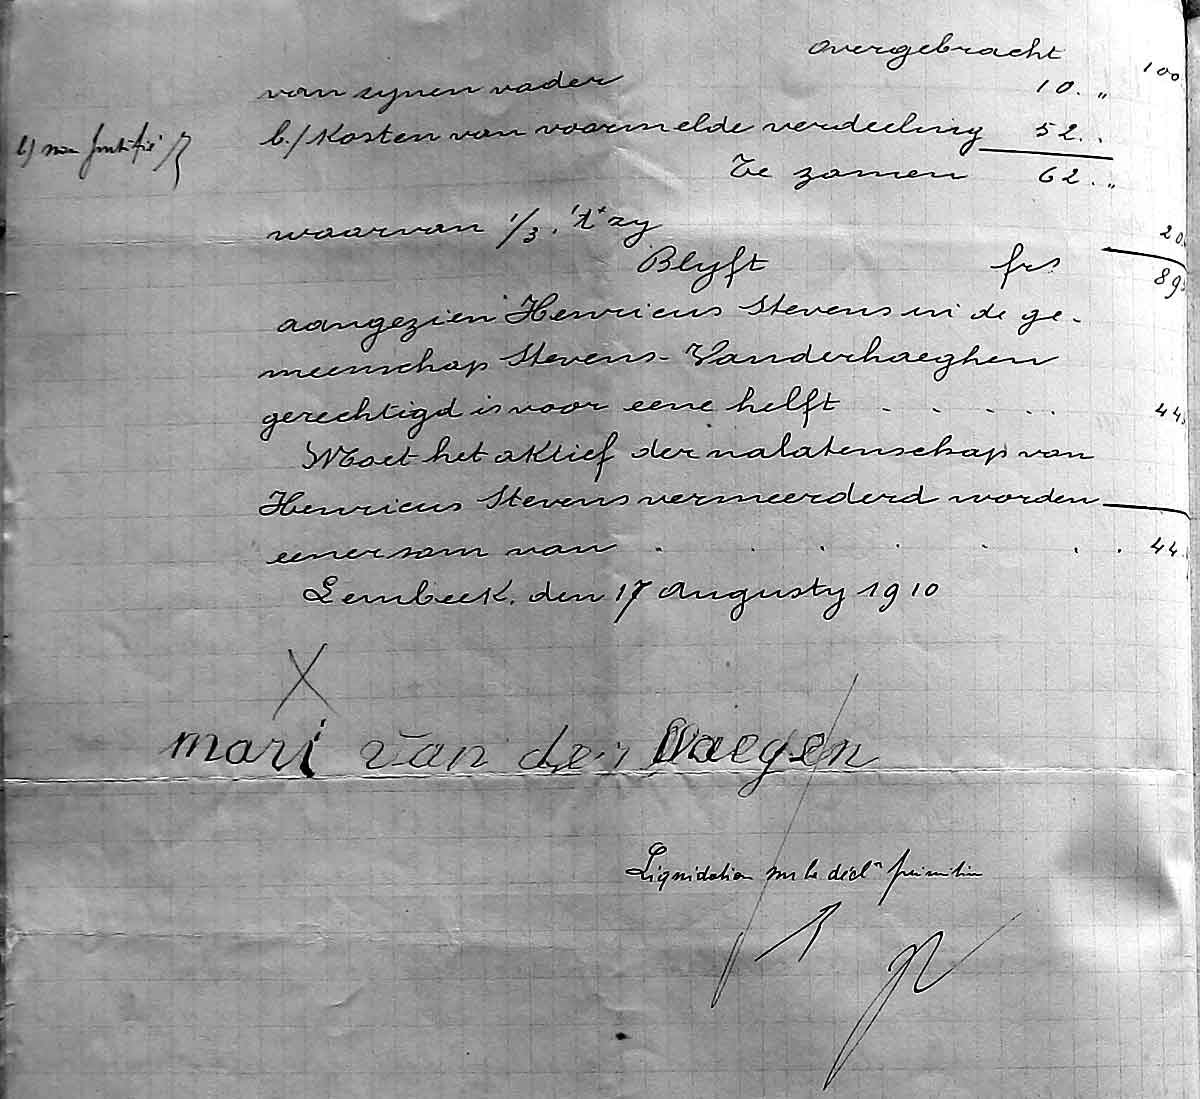 overgebracht 100
van zynen vader 10. „
b./ Kosten van voormelde verdeeling 52. .
b) non justifié
Te zamen 62. „
waarvan 1/3. 't zy 20
Blyft frs 89
aangezien Henricus Stevens in de ge-
meenschap Stevens-Vanderhaeghen
gerechtigd is voor eene helft . . . . . 44
Moet het aktief der nalatenschap van
Henricus Stevens vermeerderd worden
eener som van . . . . . . . 44
Lembeek. den 17 Augusty 1910
X
mari van der Haegen
Liquidation sur la décl^n primitive